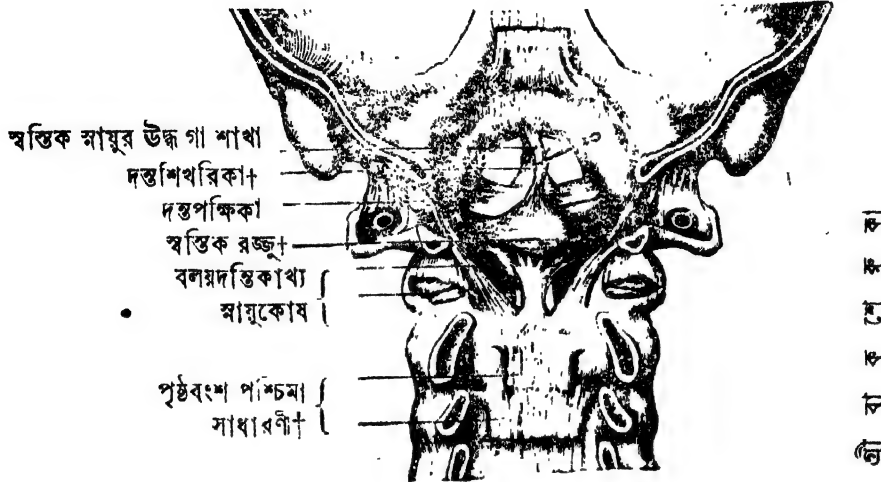 স্বস্তিক স্নায়ুর ঊর্দ্ধ গা শাখা
দন্তশিখরিকা†
দন্তপক্ষিকা
স্বস্তিক রজ্জু†
বলয়দন্তিকাখ্য
স্নায়ুকোষ
পৃষ্ঠবংশ পশ্চিমা
সাধারণী†